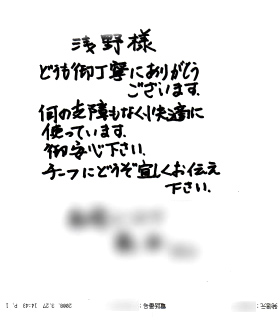 浅野様
どうも御丁寧にありがとう
ございます.
何の支障もなく、快適に
使っています.
御安心下さい.
チーフにどうぞ宜しくお伝え
下さい.
発信元:
電話番号:
2008. 3.27 14:43 P. 1